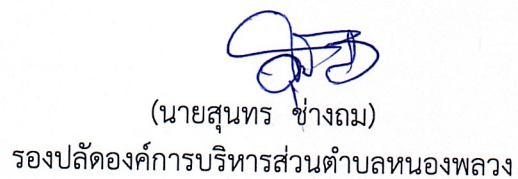 (นายสุนทร ช่างถม)
รองปลัดองค์การบริหารส่วนตำบลหนองพลวง